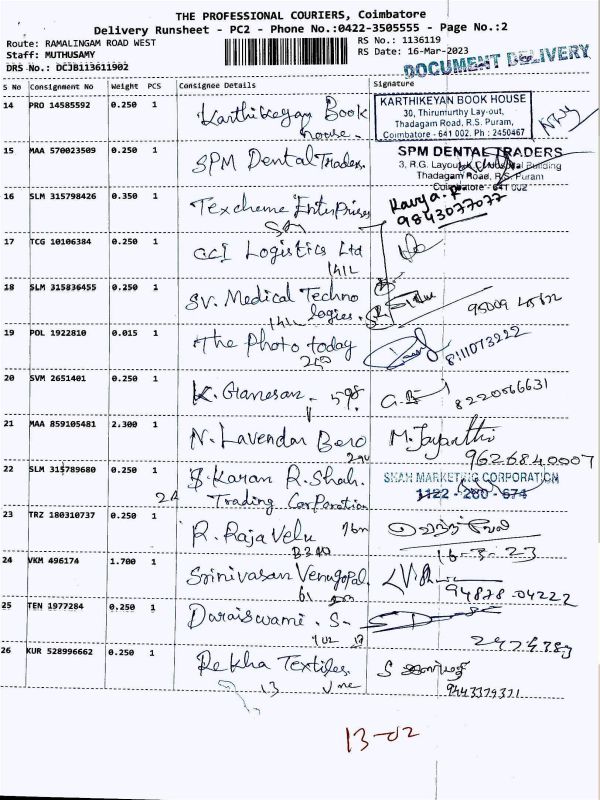 THE PROFESSIONAL COURIERS, Coimbatore
Delivery Runsheet - PC2 - Phone No.:0422-3505555 - Page No.:2
Route: RAMALINGAM ROAD WEST
Staff: MUTHUSAMY
DRS No.: DCJB113611902
RS No.: 1136119
RS Date: 16-Mar-2023
DOCUMENT DELIVERY
S No Consignment No Weight PCS Consignee Details Signature
14 PRO 14585592 0.250 1 Karthikeyan Book
House.
KARTHIKEYAN BOOK HOUSE
30, Thirumurthy Lay-out,
Thadagam Road, R.S. Puram,
Coimbatore - 641 002. Ph : 2450467
15 MAA 570023509 0.250 1 SPM Dental Traders.
SPM DENTAL TRADERS
3, R.G. Layout, Building
Thadagam Road, R.S. Puram
Coimbatore - 641 002
16 SLM 315798426 0.350 1 Texcheme Enterprises
Kavya.R
9843077077
17 TCG 10106384 0.250 1 CCI Logistics Ltd
18 SLM 315836455 0.250 1 SV. Medical Techno
logies.
19 POL 1922810 0.015 1 The Photo today
8111073222
20 SVM 2651401 0.250 1 K. Ganesan. 598.
8220566631
21 MAA 859105481 2.300 1 N. Lavendar Bero M. Jayanthi
9626840007
22 SLM 315789680 0.250 1 S. Karan R. Shah.
2A Trading Corporation
SHAH MARKETING CORPORATION
1122 - 280 - 674
23 TRZ 180310737 0.250 1 R. Raja Velu
16-3-23
24 VKM 496174 1.700 1 Srinivasan Venugopal.
94878 04222
25 TEN 1977284 0.250 1 Doraiswami . S.
26 KUR 528996662 0.250 1 Rekha Textiles
13
9443379371
13-02